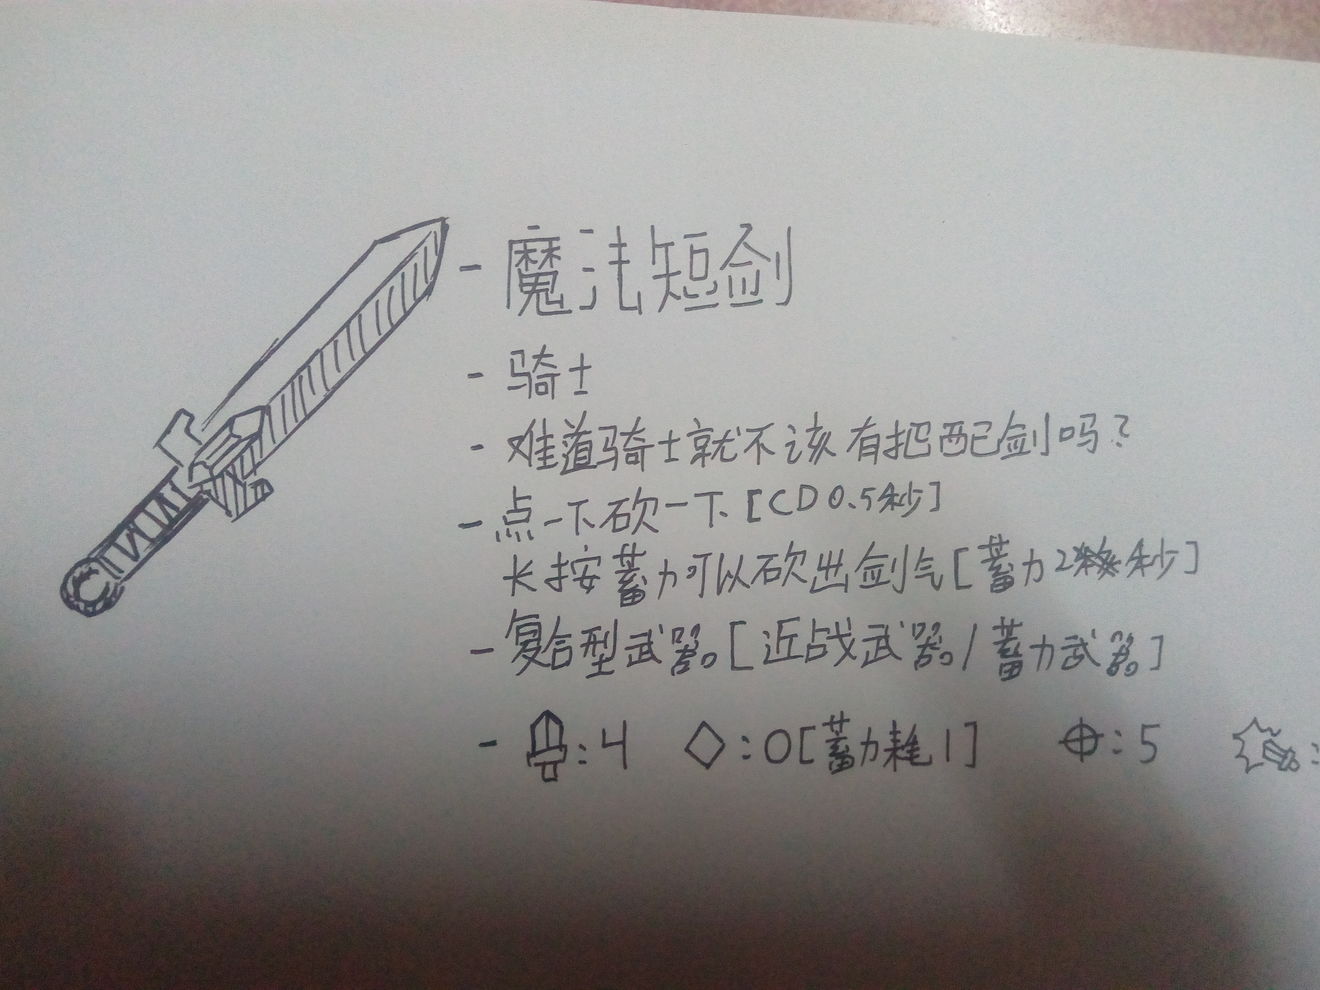 - 魔法短剑
- 骑士
- 难道骑士就不该有把配剑吗？
- 点一下砍一下[CD0.5秒]
长按蓄力可以砍出剑气[蓄力2秒]
- 复合型武器。[近战武器。/蓄力武器。]
- :4 ◇:0[蓄力耗1] ⌖:5 :